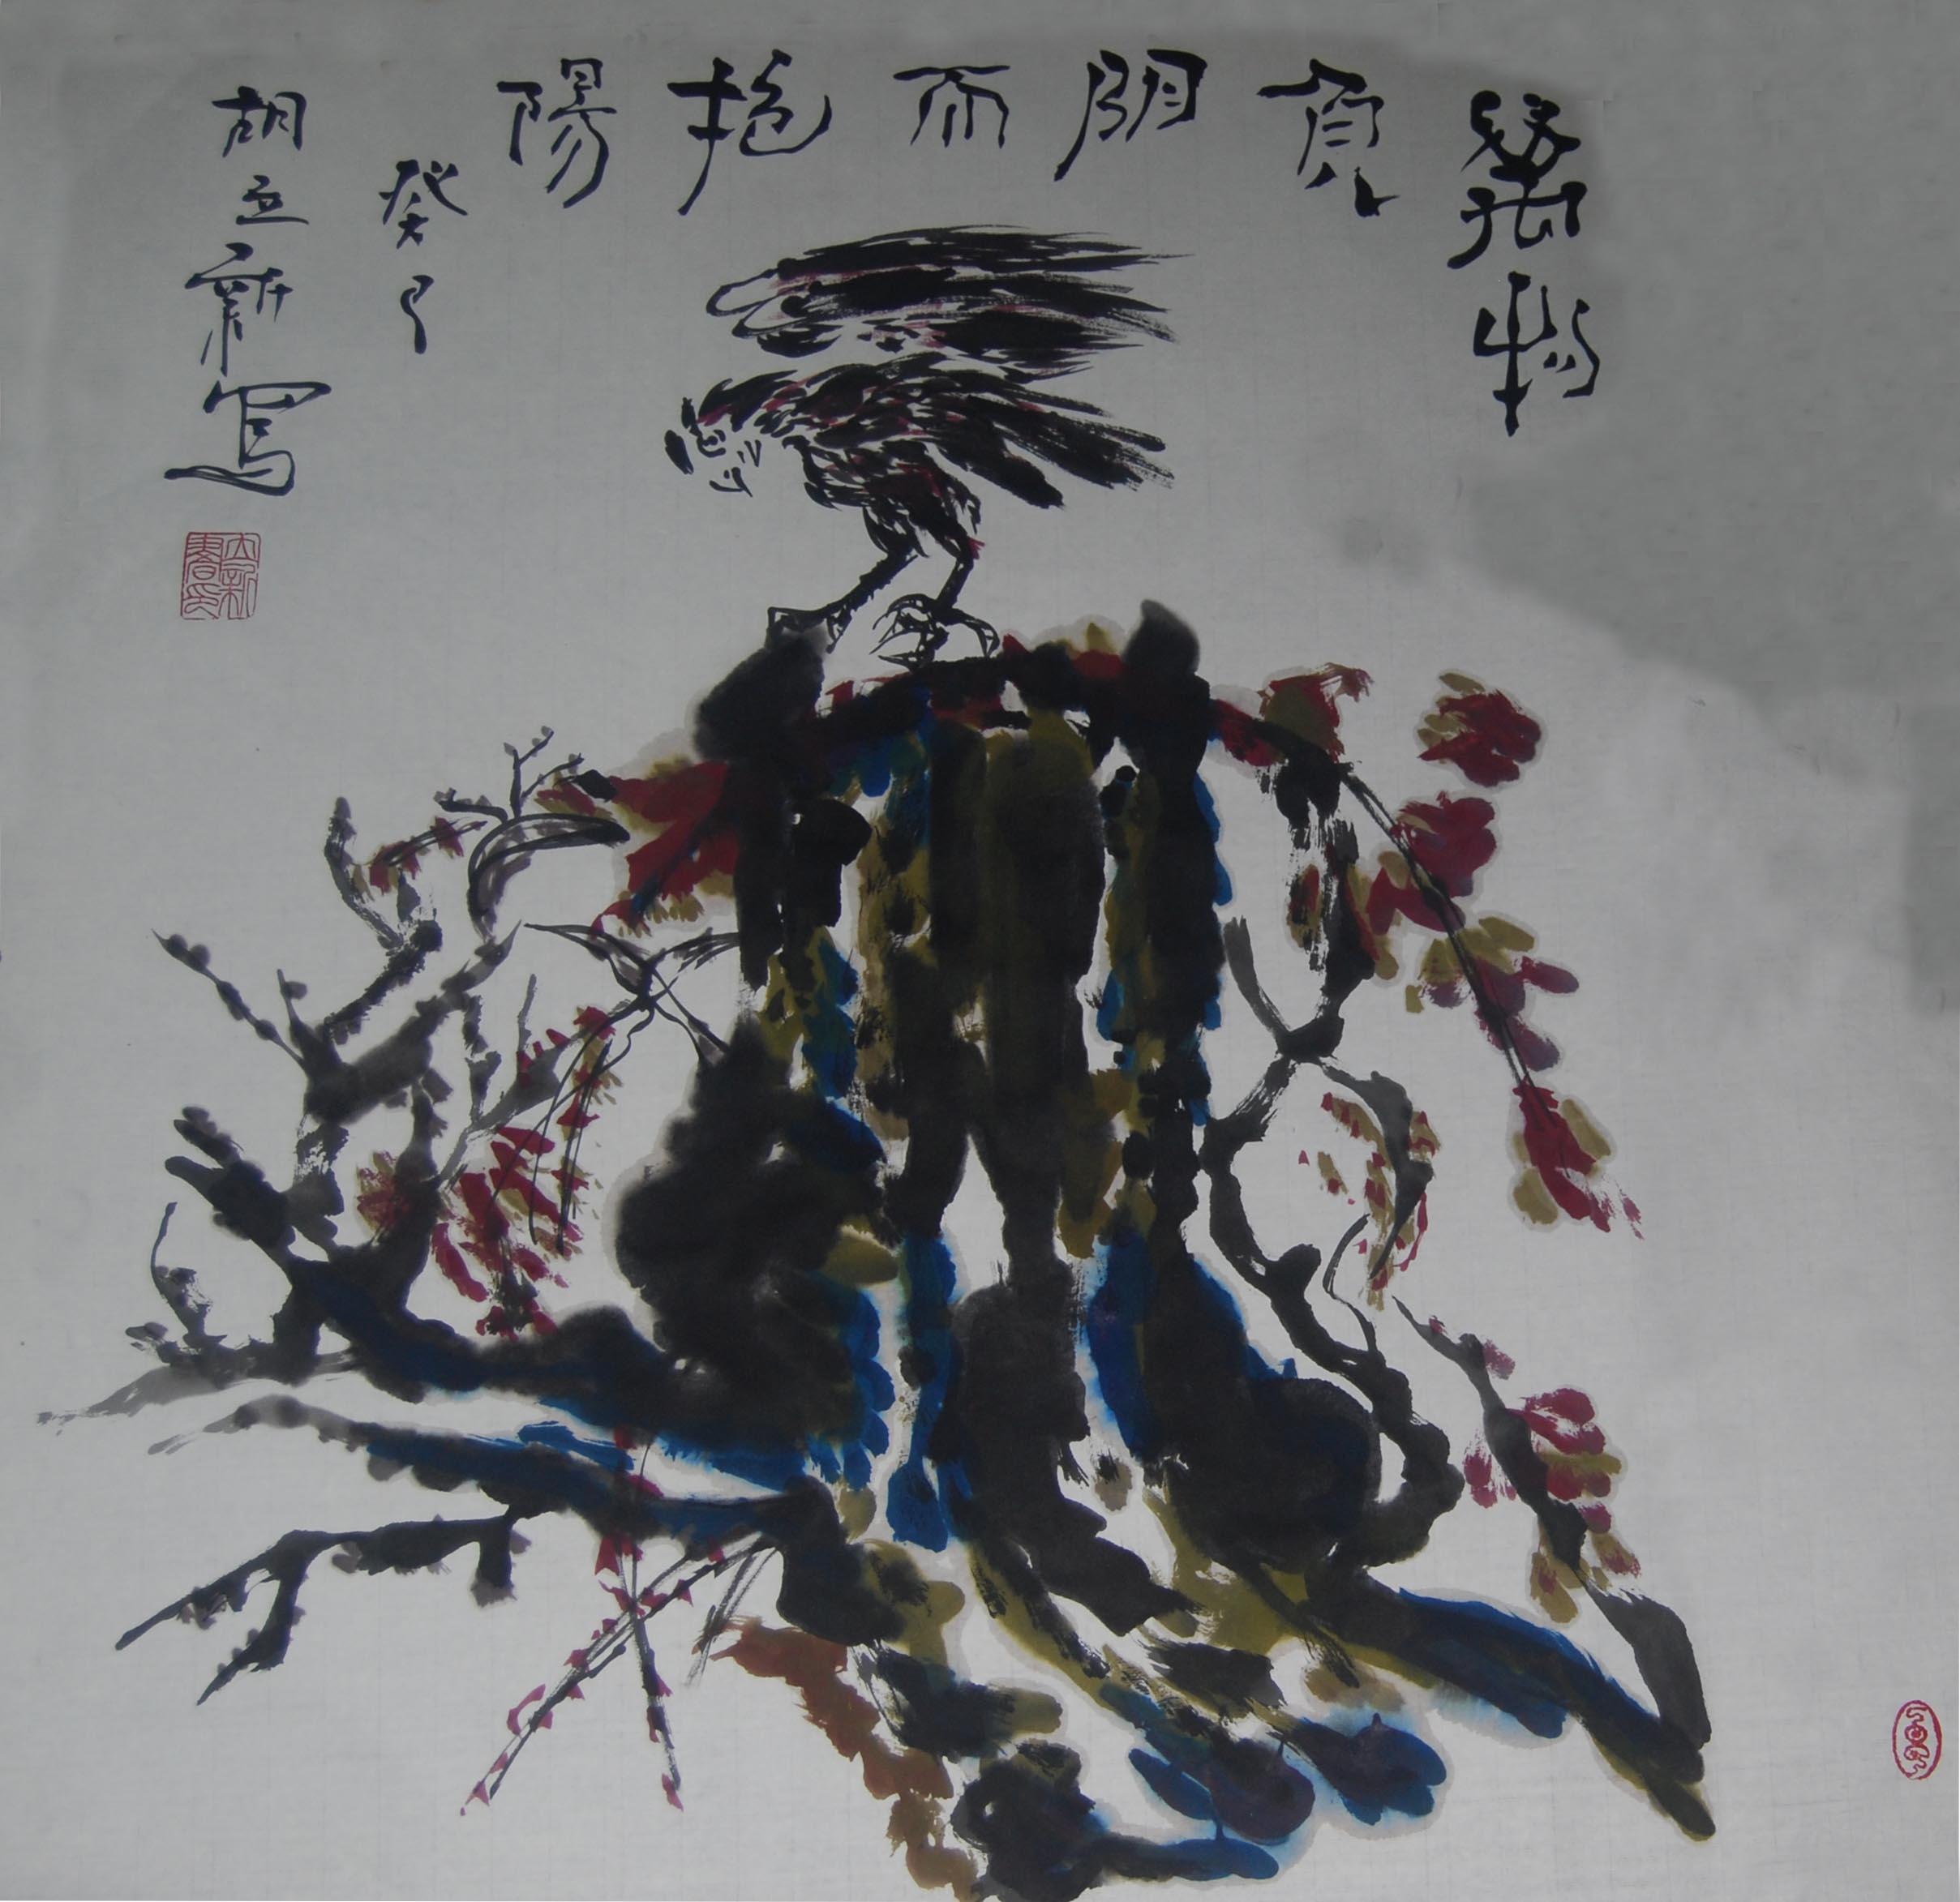 萬物負阴而抱陽
癸巳
胡立新寫